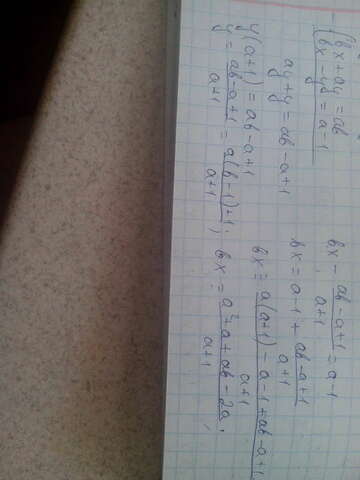 { bx + ay = ab
{ bx - y = a - 1
ay + y = ab - a + 1
y(a+1) = ab - a + 1
y = (ab - a + 1)/(a+1) = (a(b-1)+1)/(a+1);
bx - (ab - a + 1)/(a+1) = a - 1
bx = a - 1 + (ab - a + 1)/(a+1)
bx = (a(a+1) - a - 1 + ab - a + 1)/(a+1)
bx = (a² + a + ab - 2a)/(a+1),